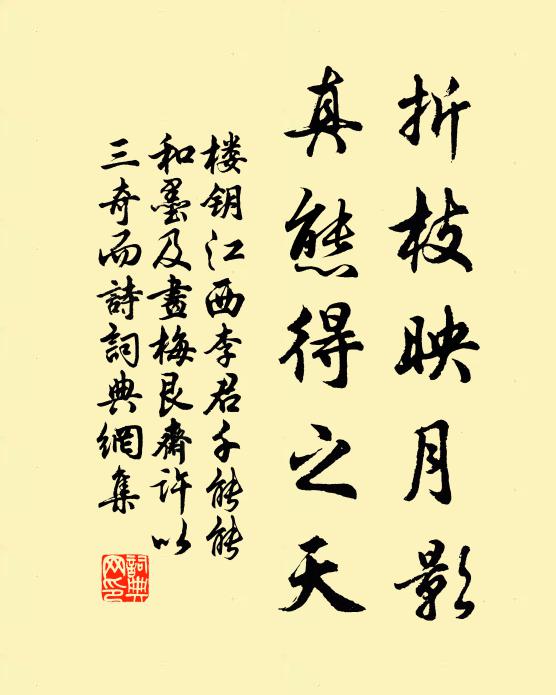 折枝映月影
真態得之天
楼钥江西李君千能能
和墨及畫梅艮齋許以
三奇而詩詞典網集
詞典
网印